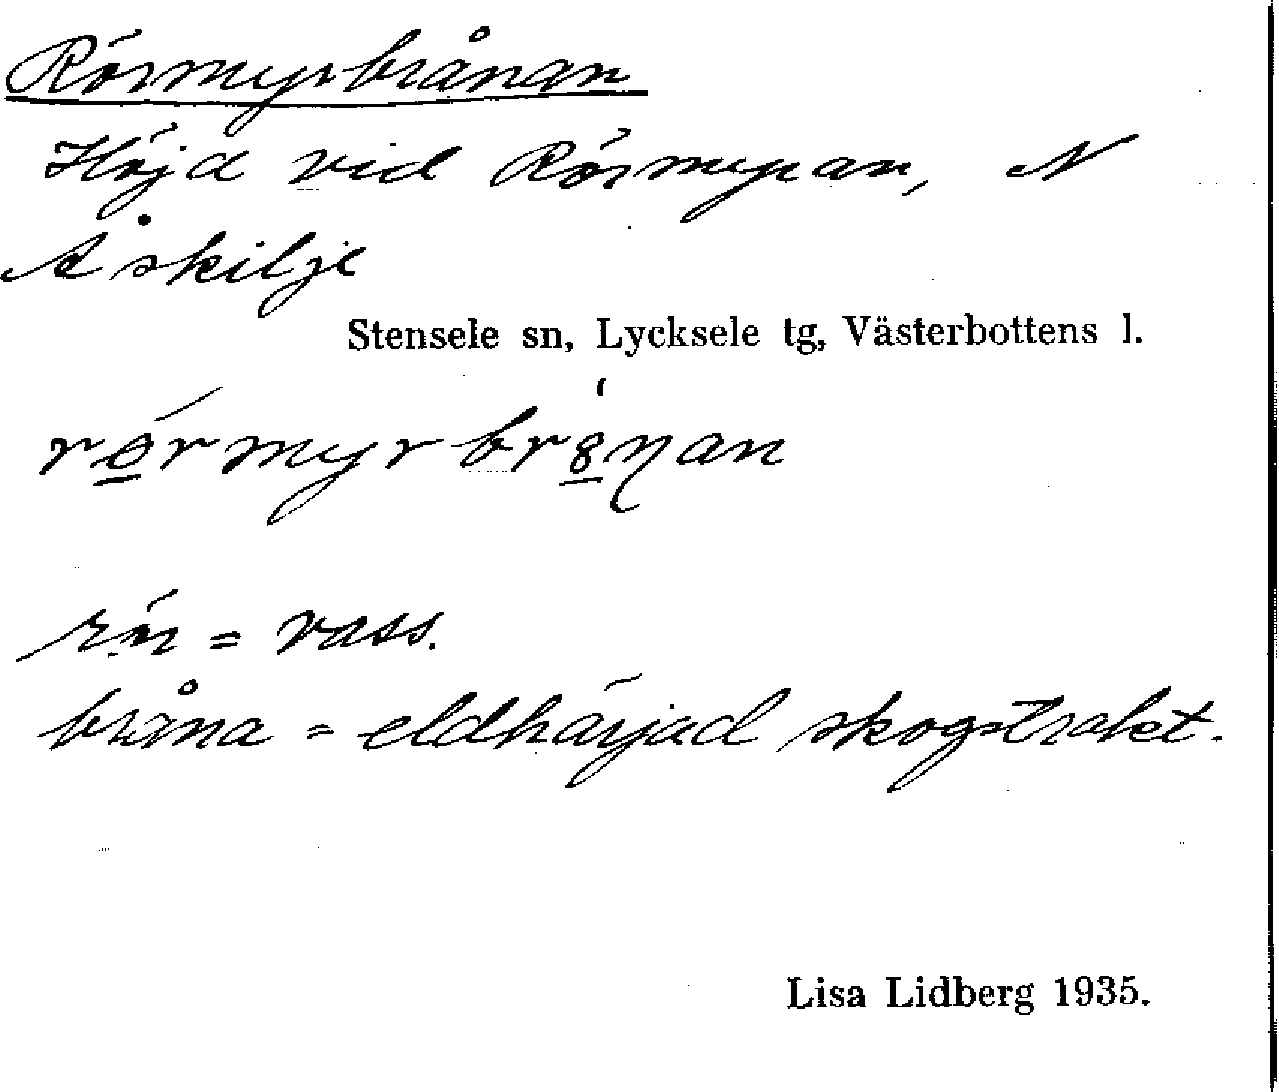 Rörmyrbrånan
Höjd vid Rörmyran, N
Åskilje
Stensele sn, Lycksele tg, Västerbottens l.
rör = vass.
bråna = eldhärjad skogstrakt.
Lisa Lidberg 1935.